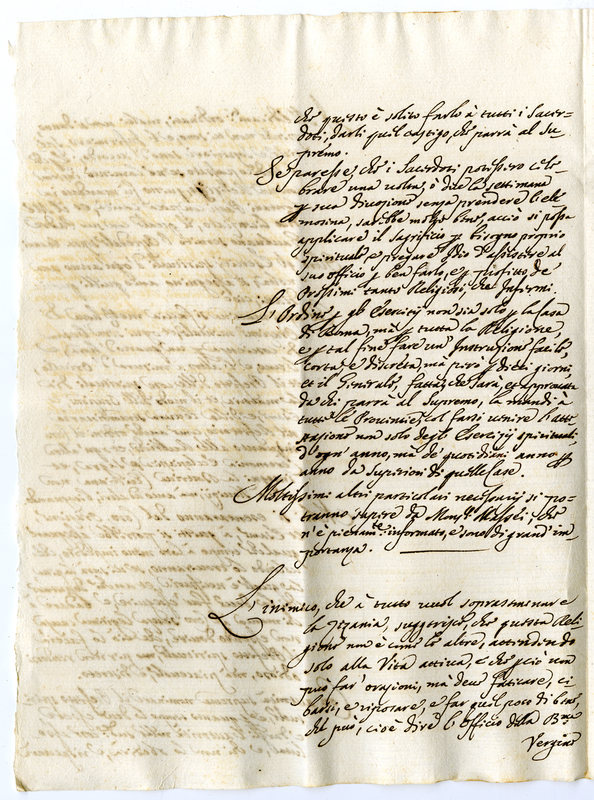 che questo è solito farlo à tutti i Sacer-
doti, darli quel castigo, che parrà al Su-
premo.
Se paresse, che i Sacerdoti potessero cele-
brare una volta, ò due la settimana
p sua divozione senza prendere l'ele
mosina, sarebbe molto bene, acciò si possa
applicare il Sagrificio p bisogno proprio
spirituale, e pregare Idio d'assistere al
suo officio p ben farlo, e p profitto de
Prossimi tanto Religiosi, che Infermi.
L'Ordine p gli Esercizij non sia solo p la Casa
di Roma, mà p tutta la Religione,
e p tal fine fare un' Instruzione facile,
corta, e discreta, mà però p dieci giorni,
et il Generale, fatta, che sarà, et approvata
da chi parrà al Supremo, la mandi à
tutte le Provincie, col farsi venire l'atte
stazione non solo degl' Esercizij spirituali
d'ogn' anno, mà de quotidiani anno p
anno da Superiori di quelle Case.
Moltissimi altri particolari necessarij si po-
tranno sapere da Monsr. Massei, che
n'è pienamte. informato, e sono di grand' im-
portanza.
L'inimico, che à tutto vuol sopraseminare
la zizania, suggerisce, che questa Reli-
gione non è come le altre, attendendo
solo alla Vita attiva, e che p ciò non
può far' orazioni, mà deve faticare, ci
barsi, e riposare, e far quel poco di bene,
che può, cioè dire l'Officio della Bma
Vergine